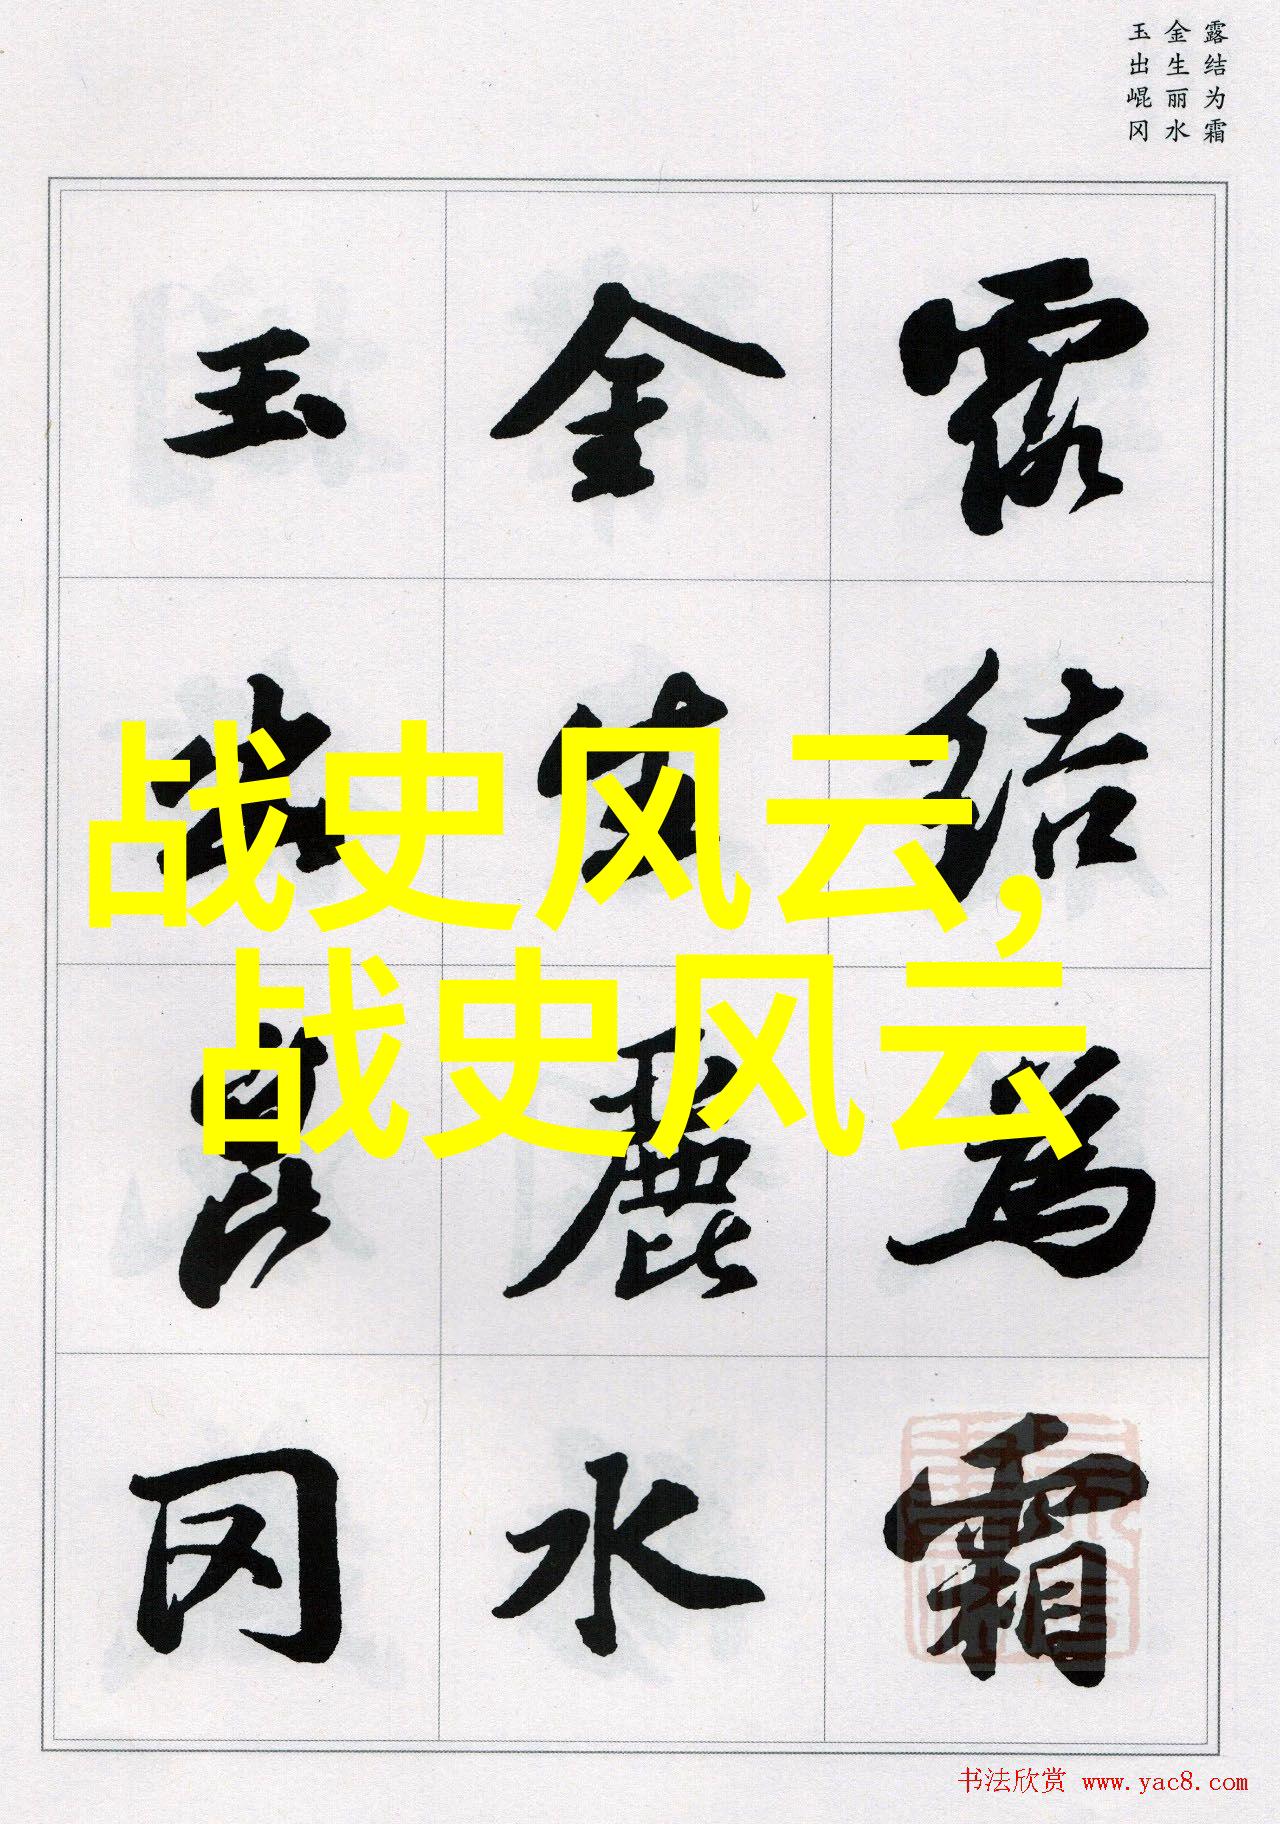 露结为霜
金生丽水
玉出崐冈
露结為霜
金生麗水
玉出崑冈
战史风云,
战史风云
书法欣赏 www.yac8.com